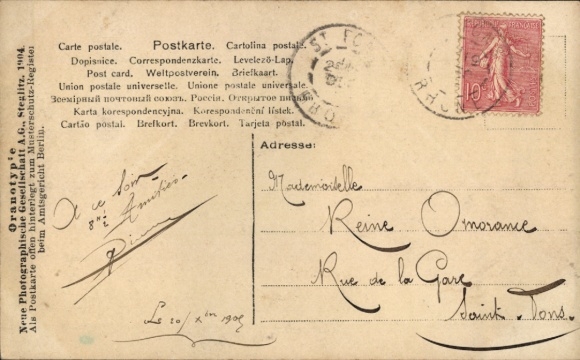 Oranotypie
Neue Photographische Gesellschaft A.G., Steglitz, 1904.
Als Postkarte offen hinterlegt zum Musterschutz-Register
beim Amtsgericht Berlin.
Carte postale. Postkarte. Cartolina postale.
Dopisnice. Correspondenzkarte. Levelező-Lap.
Post card. Weltpostverein. Brielkaart.
Union postale universelle. Unione postale universale.
Всемірный почтовый союзъ. Россія. Открытое письмо.
Karta korespondencyjna. Korespondenční lístek.
Cartão postal. Brefkort. Brevkort. Tarjeta postal.
ST FO
RHÔN
10c
Adresse:
A ce Soir
8h ½ Amitiés
Mademoiselle
Reine Omorance
Rue de la Gare
Saint. Fons.
Le 20/Xbre 1905